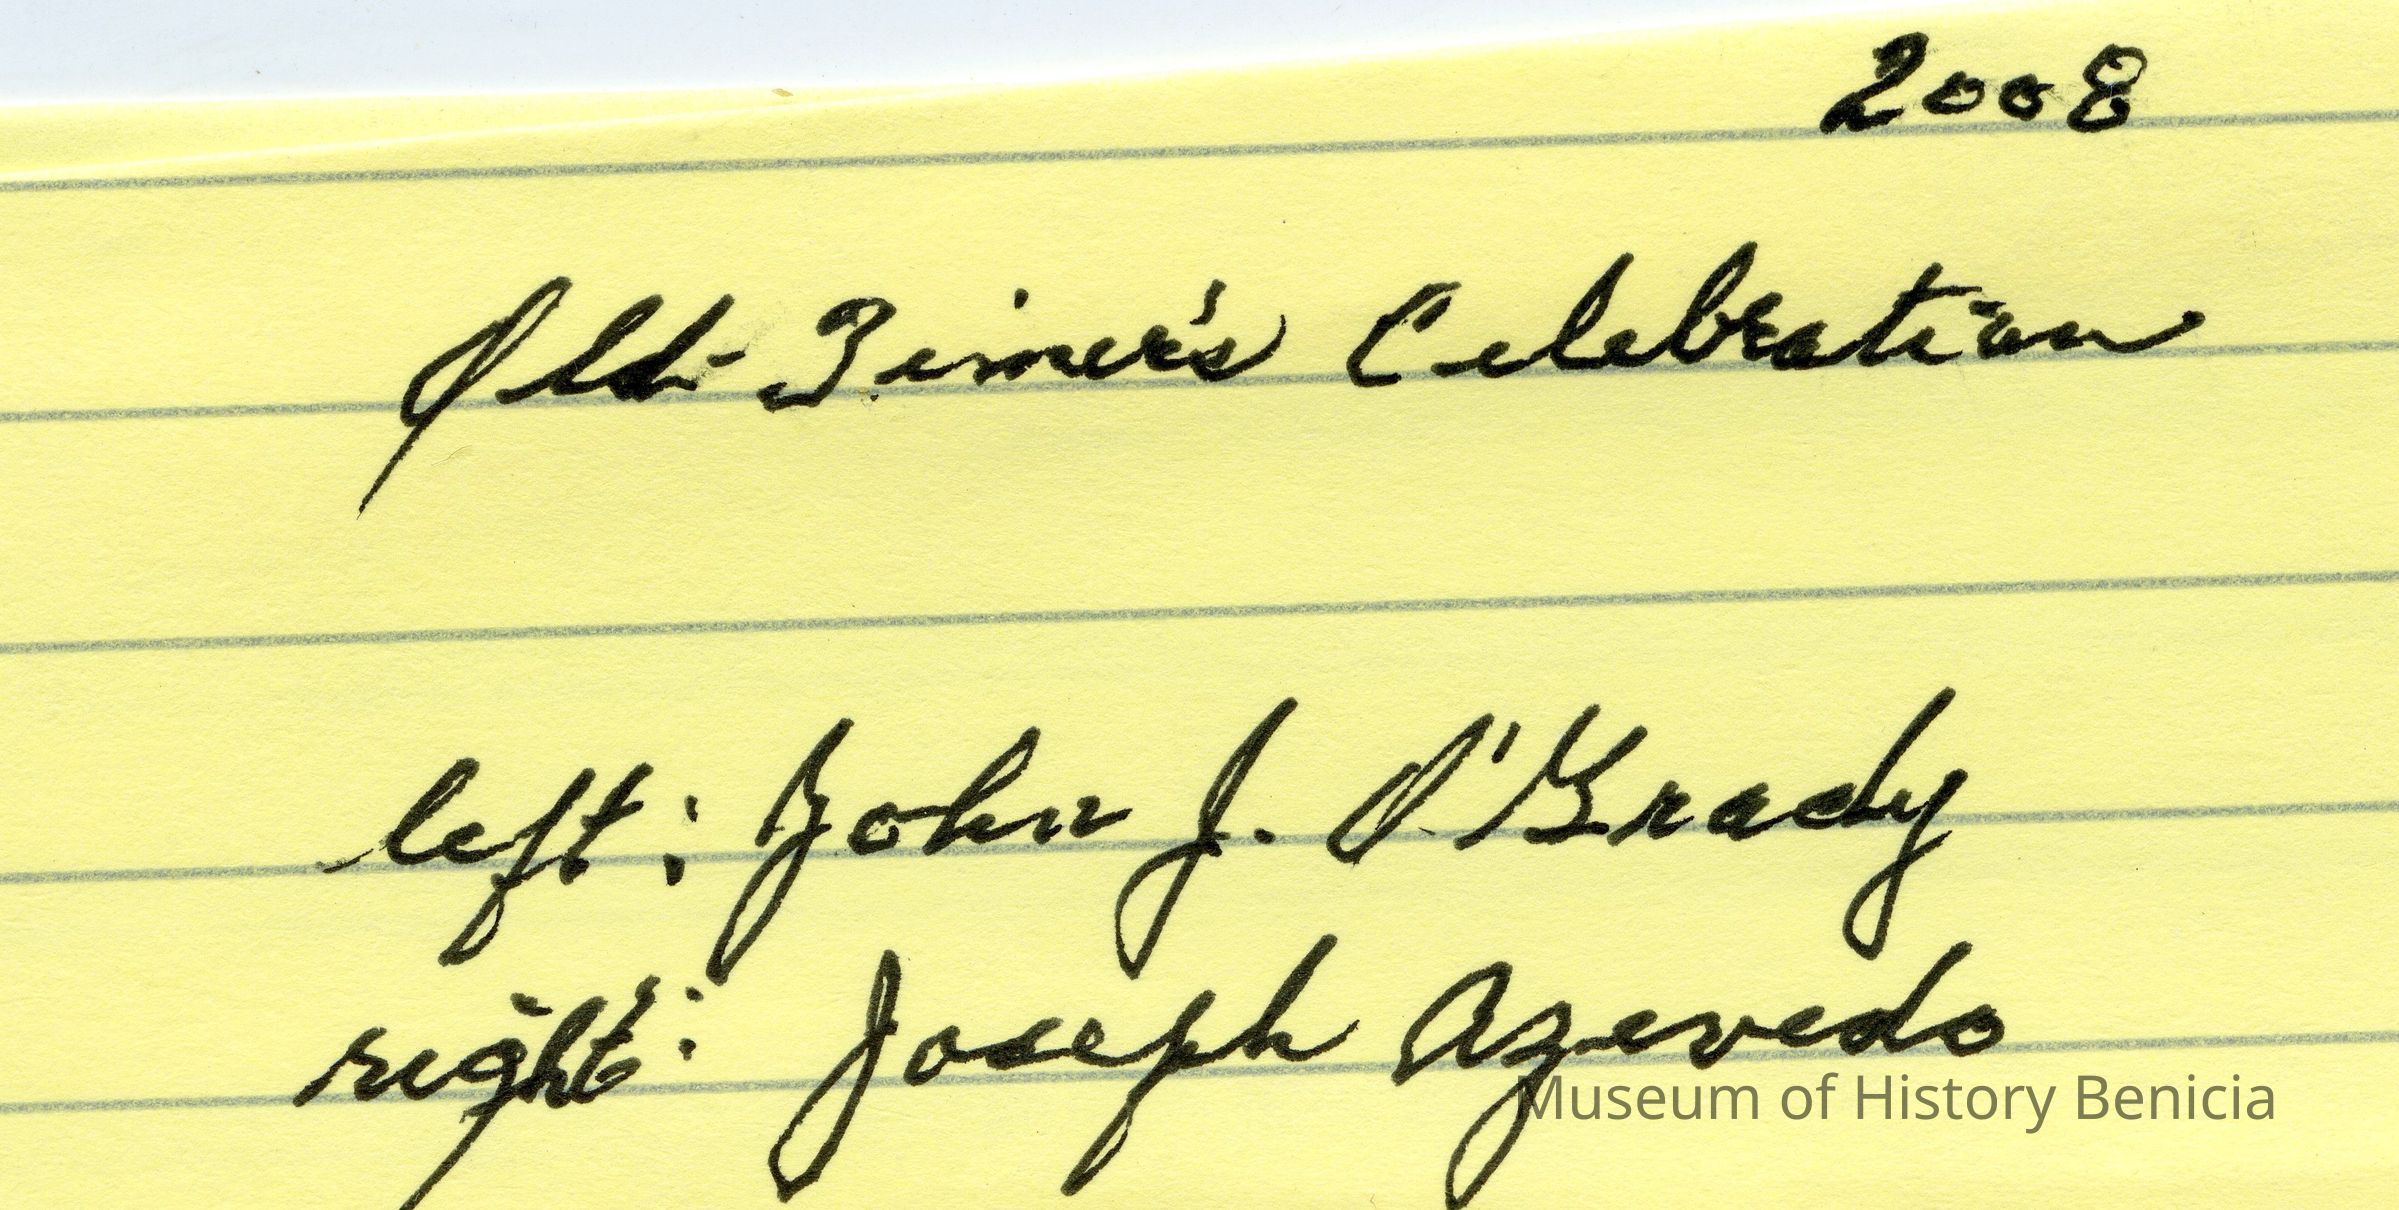 2008
Old Timer's Celebration
left: John J. O'Grady
right: Joseph Azevedo
Museum of History Benicia